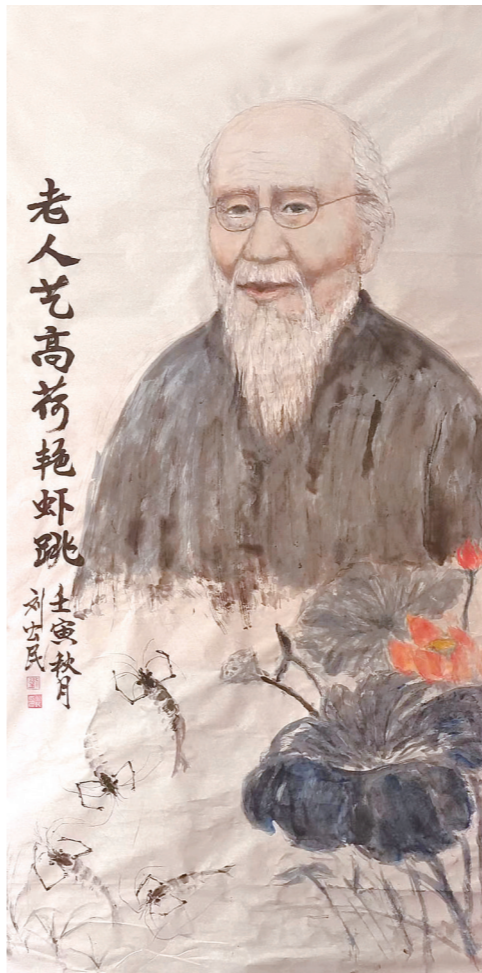 老人艺高荷艳虾跳
壬寅秋月